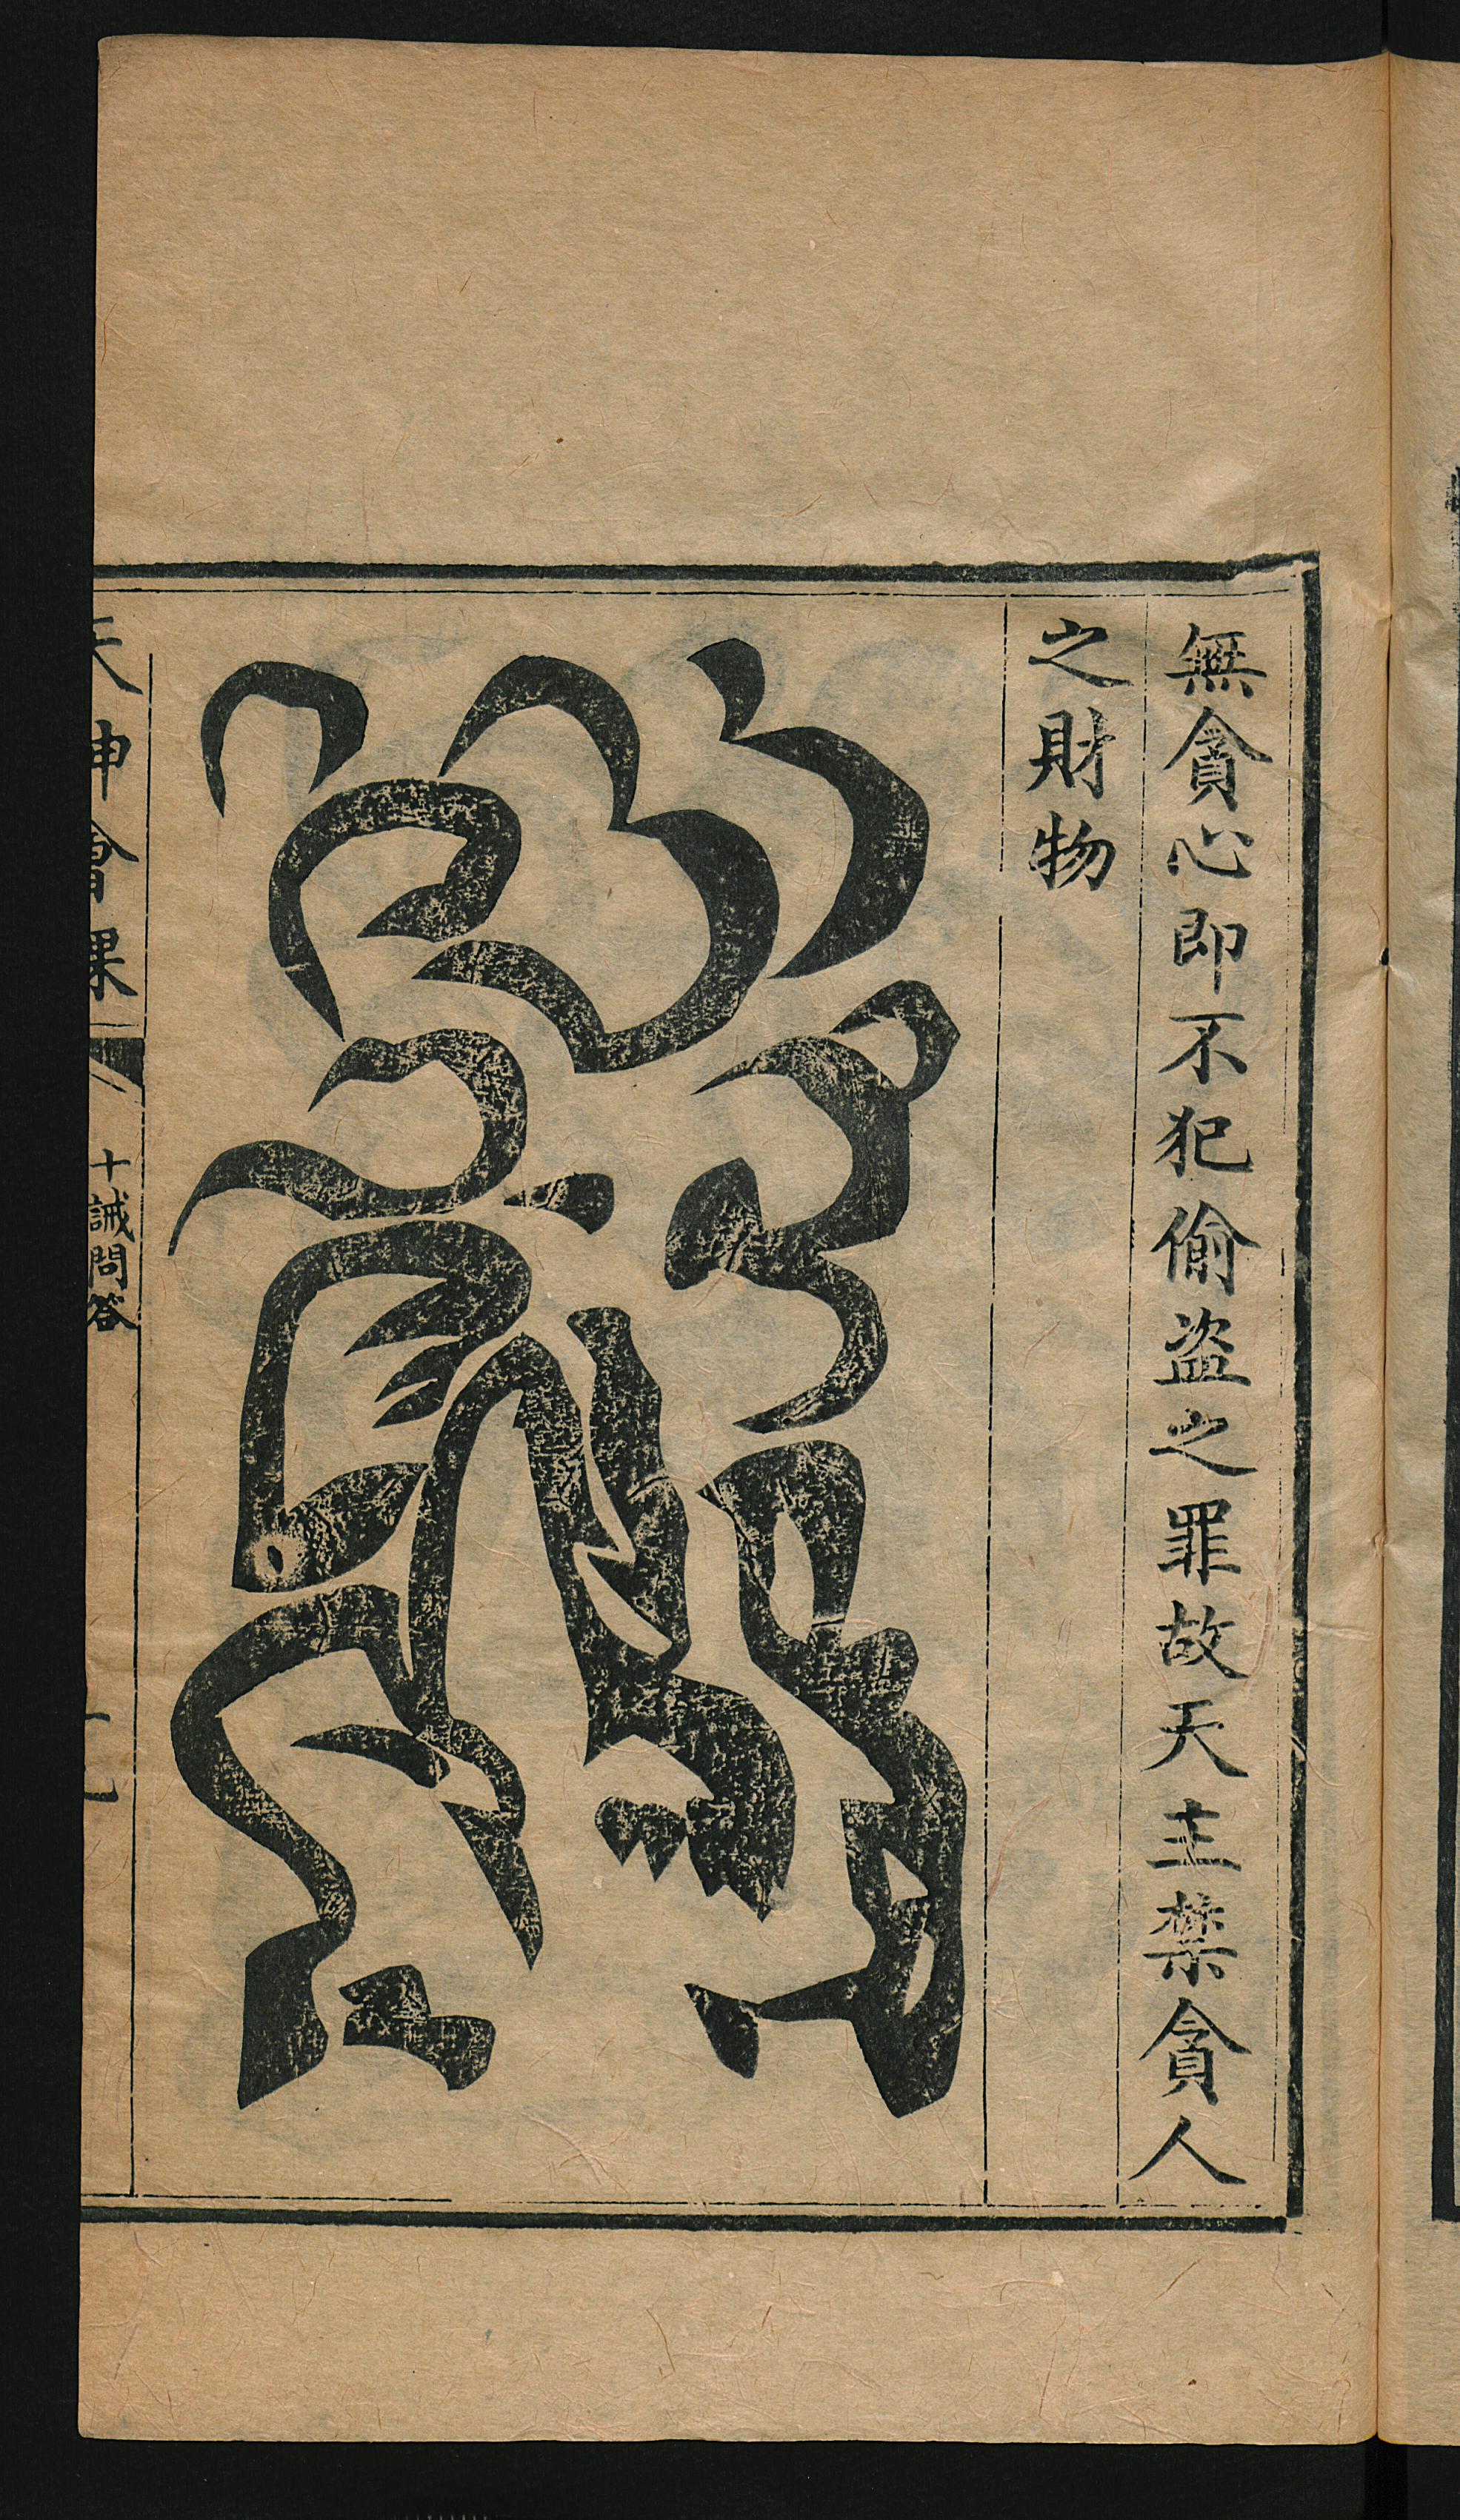 無貪心即不犯偷盜之罪故天主禁貪人
之財物
天神會課
十誡問答